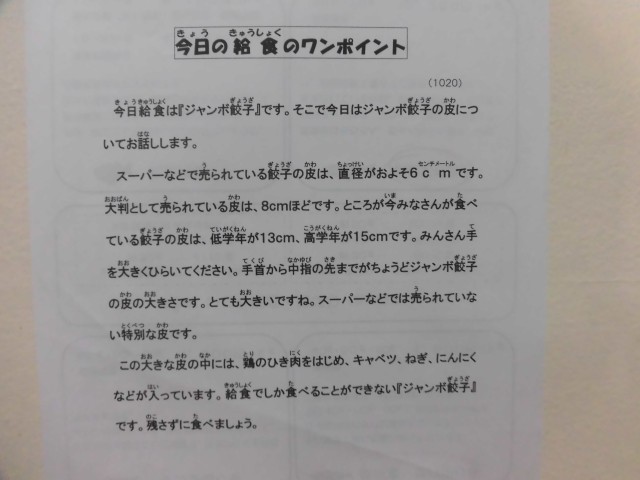 今日の給食のワンポイント
（1020）
今日給食は『ジャンボ餃子』です。そこで今日はジャンボ餃子の皮につ
いてお話しします。
スーパーなどで売られている餃子の皮は、直径がおよそ6ｃｍです。
大判として売られている皮は、8cmほどです。ところが今みなさんが食べ
ている餃子の皮は、低学年が13cm、高学年が15cmです。みんさん手
を大きくひらいてください。手首から中指の先までがちょうどジャンボ餃子
の皮の大きさです。とても大きいですね。スーパーなどでは売られていな
い特別な皮です。
この大きな皮の中には、鶏のひき肉をはじめ、キャベツ、ねぎ、にんにく
などが入っています。給食でしか食べることができない『ジャンボ餃子』
です。残さずに食べましょう。